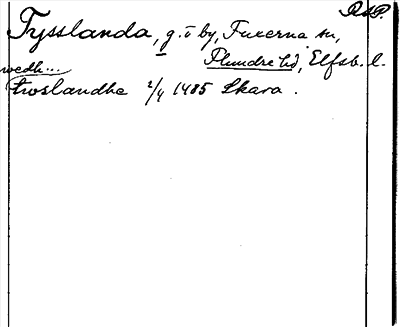 RAP.
Tysslanda, g. i by, Fuxerna sn,
Flundre hd, Elfsb. l.
wedh...
troslandhe 2/4 1485 Skara.